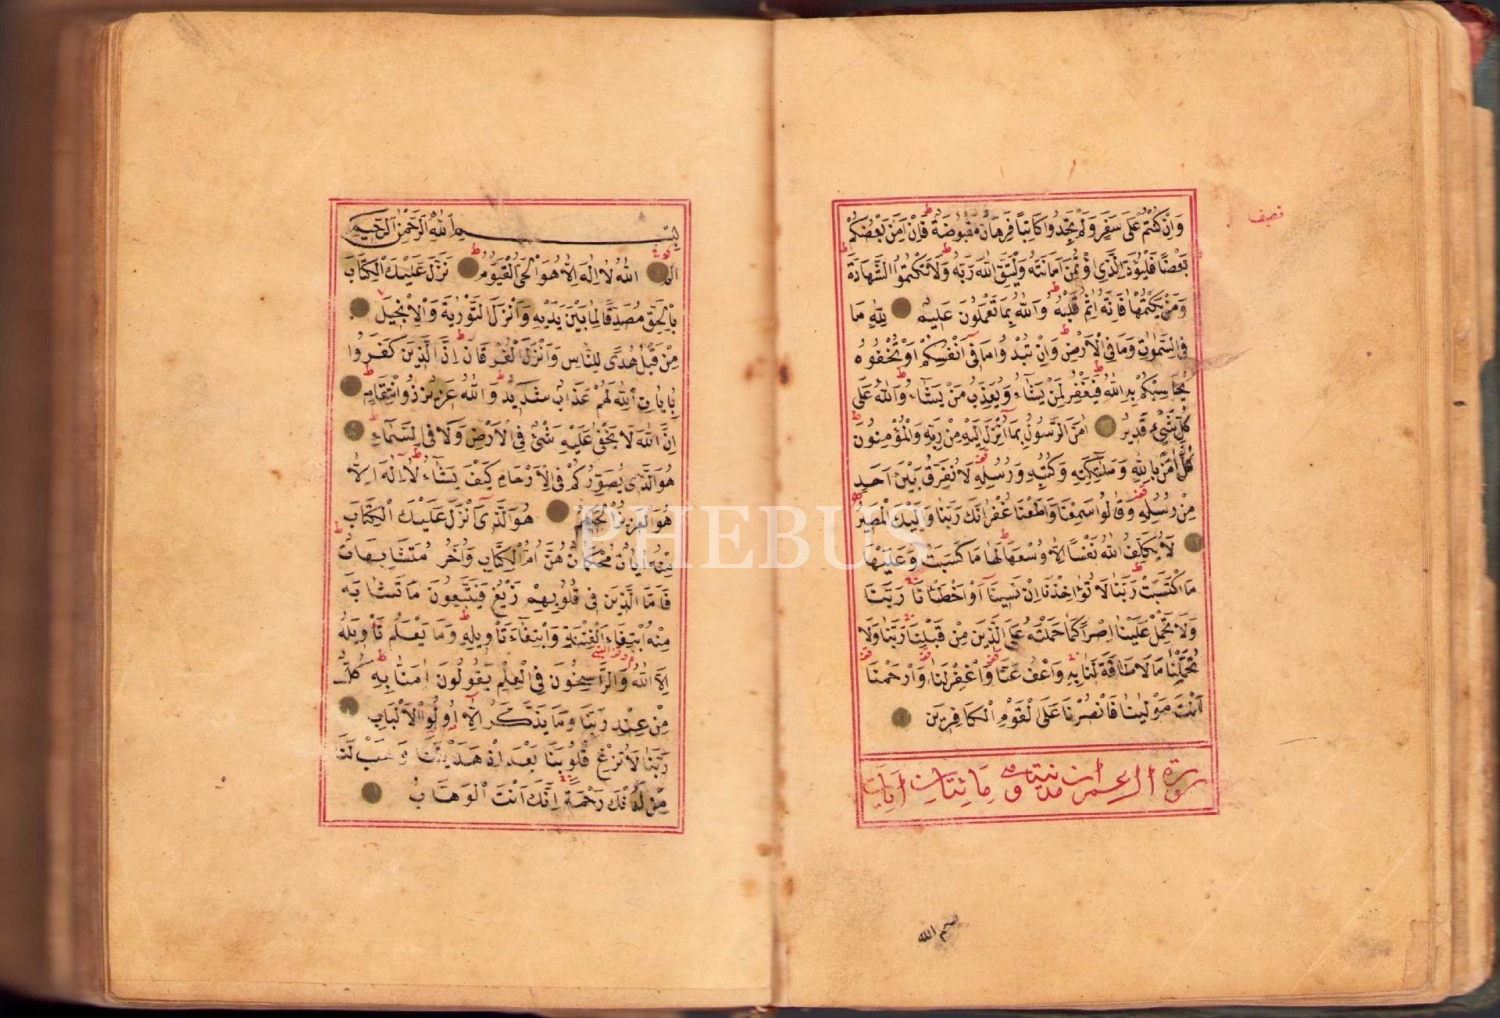 وَاِنْ كُنْتُمْ عَلٰى سَفَرٍ وَلَمْ تَجِدُوا كَاتِبًا فَرِهَانٌ مَقْبُوضَةٌ فَاِنْ اَمِنَ بَعْضُكُمْ
نصف
بَعْضًا فَلْيُؤَدِّ الَّذِي اؤْتُمِنَ اَمَانَتَهُ وَلْيَتَّقِ اللّٰهَ رَبَّهُ وَلَا تَكْتُمُوا الشَّهَادَةَ
وَمَنْ يَكْتُمْهَا فَاِنَّهُ اٰثِمٌ قَلْبُهُ وَاللّٰهُ بِمَا تَعْمَلُونَ عَلِيمٌ لِلّٰهِ مَا
فِي السَّمٰوَاتِ وَمَا فِي الْاَرْضِ وَاِنْ تُبْدُوا مَا فِي اَنْفُسِكُمْ اَوْ تُخْفُوهُ
يُحَاسِبْكُمْ بِهِ اللّٰهُ فَيَغْفِرُ لِمَنْ يَشَاءُ وَيُعَذِّبُ مَنْ يَشَاءُ وَاللّٰهُ عَلٰى
كُلِّ شَيْءٍ قَدِيرٌ اٰمَنَ الرَّسُولُ بِمَا اُنْزِلَ اِلَيْهِ مِنْ رَبِّهِ وَالْمُؤْمِنُونَ
كُلٌّ اٰمَنَ بِاللّٰهِ وَمَلٰئِكَتِهِ وَكُتُبِهِ وَرُسُلِهِ لَا نُفَرِّقُ بَيْنَ اَحَدٍ
مِنْ رُسُلِهِ وَقَالُوا سَمِعْنَا وَاَطَعْنَا غُفْرَانَكَ رَبَّنَا وَاِلَيْكَ الْمَصِيرُ
لَا يُكَلِّفُ اللّٰهُ نَفْسًا اِلَّا وُسْعَهَا لَهَا مَا كَسَبَتْ وَعَلَيْهَا
مَا اكْتَسَبَتْ رَبَّنَا لَا تُؤَاخِذْنَا اِنْ نَسِينَا اَوْ اَخْطَأْنَا رَبَّنَا
وَلَا تَحْمِلْ عَلَيْنَا اِصْرًا كَمَا حَمَلْتَهُ عَلَى الَّذِينَ مِنْ قَبْلِنَا رَبَّنَا وَلَا
تُحَمِّلْنَا مَا لَا طَاقَةَ لَنَا بِهِ وَاعْفُ عَنَّا وَاغْفِرْ لَنَا وَارْحَمْنَا
اَنْتَ مَوْلٰينَا فَانْصُرْنَا عَلَى الْقَوْمِ الْكَافِرِينَ
سورة ال عمران مدنية وهي مائتان ايات
بسم الله
بِسْمِ اللّٰهِ الرَّحْمٰنِ الرَّحِيمِ
الٓمٓ اَللّٰهُ لَا اِلٰهَ اِلَّا هُوَ الْحَيُّ الْقَيُّومُ نَزَّلَ عَلَيْكَ الْكِتَابَ
بِالْحَقِّ مُصَدِّقًا لِمَا بَيْنَ يَدَيْهِ وَاَنْزَلَ التَّوْرٰيةَ وَالْاِنْجِيلَ
مِنْ قَبْلُ هُدًى لِلنَّاسِ وَاَنْزَلَ الْفُرْقَانَ اِنَّ الَّذِينَ كَفَرُوا
بِاٰيَاتِ اللّٰهِ لَهُمْ عَذَابٌ شَدِيدٌ وَاللّٰهُ عَزِيزٌ ذُو انْتِقَامٍ
اِنَّ اللّٰهَ لَا يَخْفٰى عَلَيْهِ شَيْءٌ فِي الْاَرْضِ وَلَا فِي السَّمَاءِ
هُوَ الَّذِي يُصَوِّرُكُمْ فِي الْاَرْحَامِ كَيْفَ يَشَاءُ لَا اِلٰهَ اِلَّا
هُوَ الْعَزِيزُ الْحَكِيمُ هُوَ الَّذِي اَنْزَلَ عَلَيْكَ الْكِتَابَ
مِنْهُ اٰيَاتٌ مُحْكَمَاتٌ هُنَّ اُمُّ الْكِتَابِ وَاُخَرُ مُتَشَابِهَاتٌ
فَاَمَّا الَّذِينَ فِي قُلُوبِهِمْ زَيْغٌ فَيَتَّبِعُونَ مَا تَشَابَهَ
مِنْهُ ابْتِغَاءَ الْفِتْنَةِ وَابْتِغَاءَ تَأْوِيلِهِ وَمَا يَعْلَمُ تَأْوِيلَهُ
اِلَّا اللّٰهُ وَالرَّاسِخُونَ فِي الْعِلْمِ يَقُولُونَ اٰمَنَّا بِهِ كُلٌّ
مِنْ عِنْدِ رَبِّنَا وَمَا يَذَّكَّرُ اِلَّا اُولُوا الْاَلْبَابِ
رَبَّنَا لَا تُزِغْ قُلُوبَنَا بَعْدَ اِذْ هَدَيْتَنَا وَهَبْ لَنَا
مِنْ لَدُنْكَ رَحْمَةً اِنَّكَ اَنْتَ الْوَهَّابُ
PHEBUS